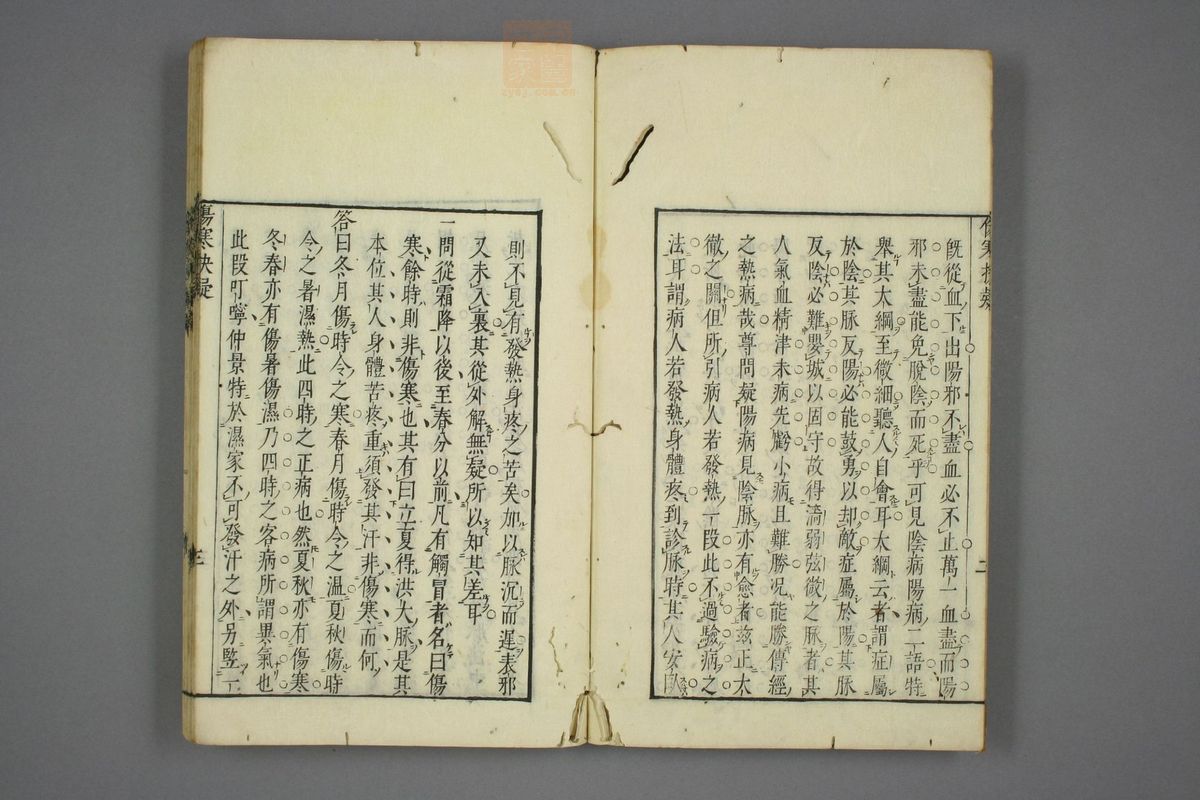 既從血下出陽邪不盡血必不止萬一血盡而陽
邪未盡能免脫陰而死乎可見陰病陽病二語特
舉其大綱至微細聽人自會耳大綱云者謂症屬
於陰其脉反陽必能鼓勇以却敵症屬於陽其脉
反陰必難嬰城以固守故得濇弱弦微之脉者其
人氣血精津未病先虧小病且難勝况能勝傳經
之熱病哉尊問疑陽病見陰脉亦有愈者兹正太
微之關但所引病人若發熱一段此不過驗病之
法耳謂病人若發熱身體疼到診脉時其人安臥
則不見有發熱身疼之苦矣加以脉沉而遲表邪
又未入裏其從外解無疑所以知其差耳
一問從霜降以後至春分以前凡有觸冒者名曰傷
寒餘時則非傷寒也其有曰立夏得洪大脉是其
本位其人身體苦疼重須發其汗非傷寒而何
答曰冬月傷時令之寒春月傷時令之温夏秋傷時
令之暑濕熱此四時之正病也然夏秋亦有傷寒
冬春亦有傷暑傷濕乃四時之客病所謂異氣也
此段叮嚀仲景特於濕家不可發汗之外另竪一
傷寒
三
二
zysj.com.cn